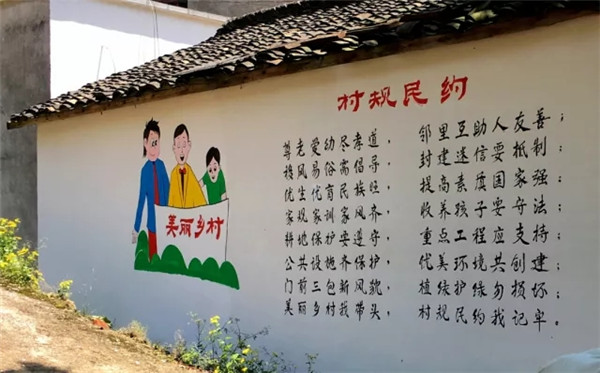 村规民约
尊老爱幼尽孝道， 邻里互助人友善；
移风易俗需倡导， 封建迷信要抵制；
优生优育民族旺， 提高素质国家强；
家规家训家风齐， 收养孩子要守法；
耕地保护要遵守， 重点工程应支持；
公共设施齐保护， 优美环境共创建；
门前三包新风貌， 植绿护绿勿损坏；
美丽乡村我带头， 村规民约我记牢。
美丽乡村